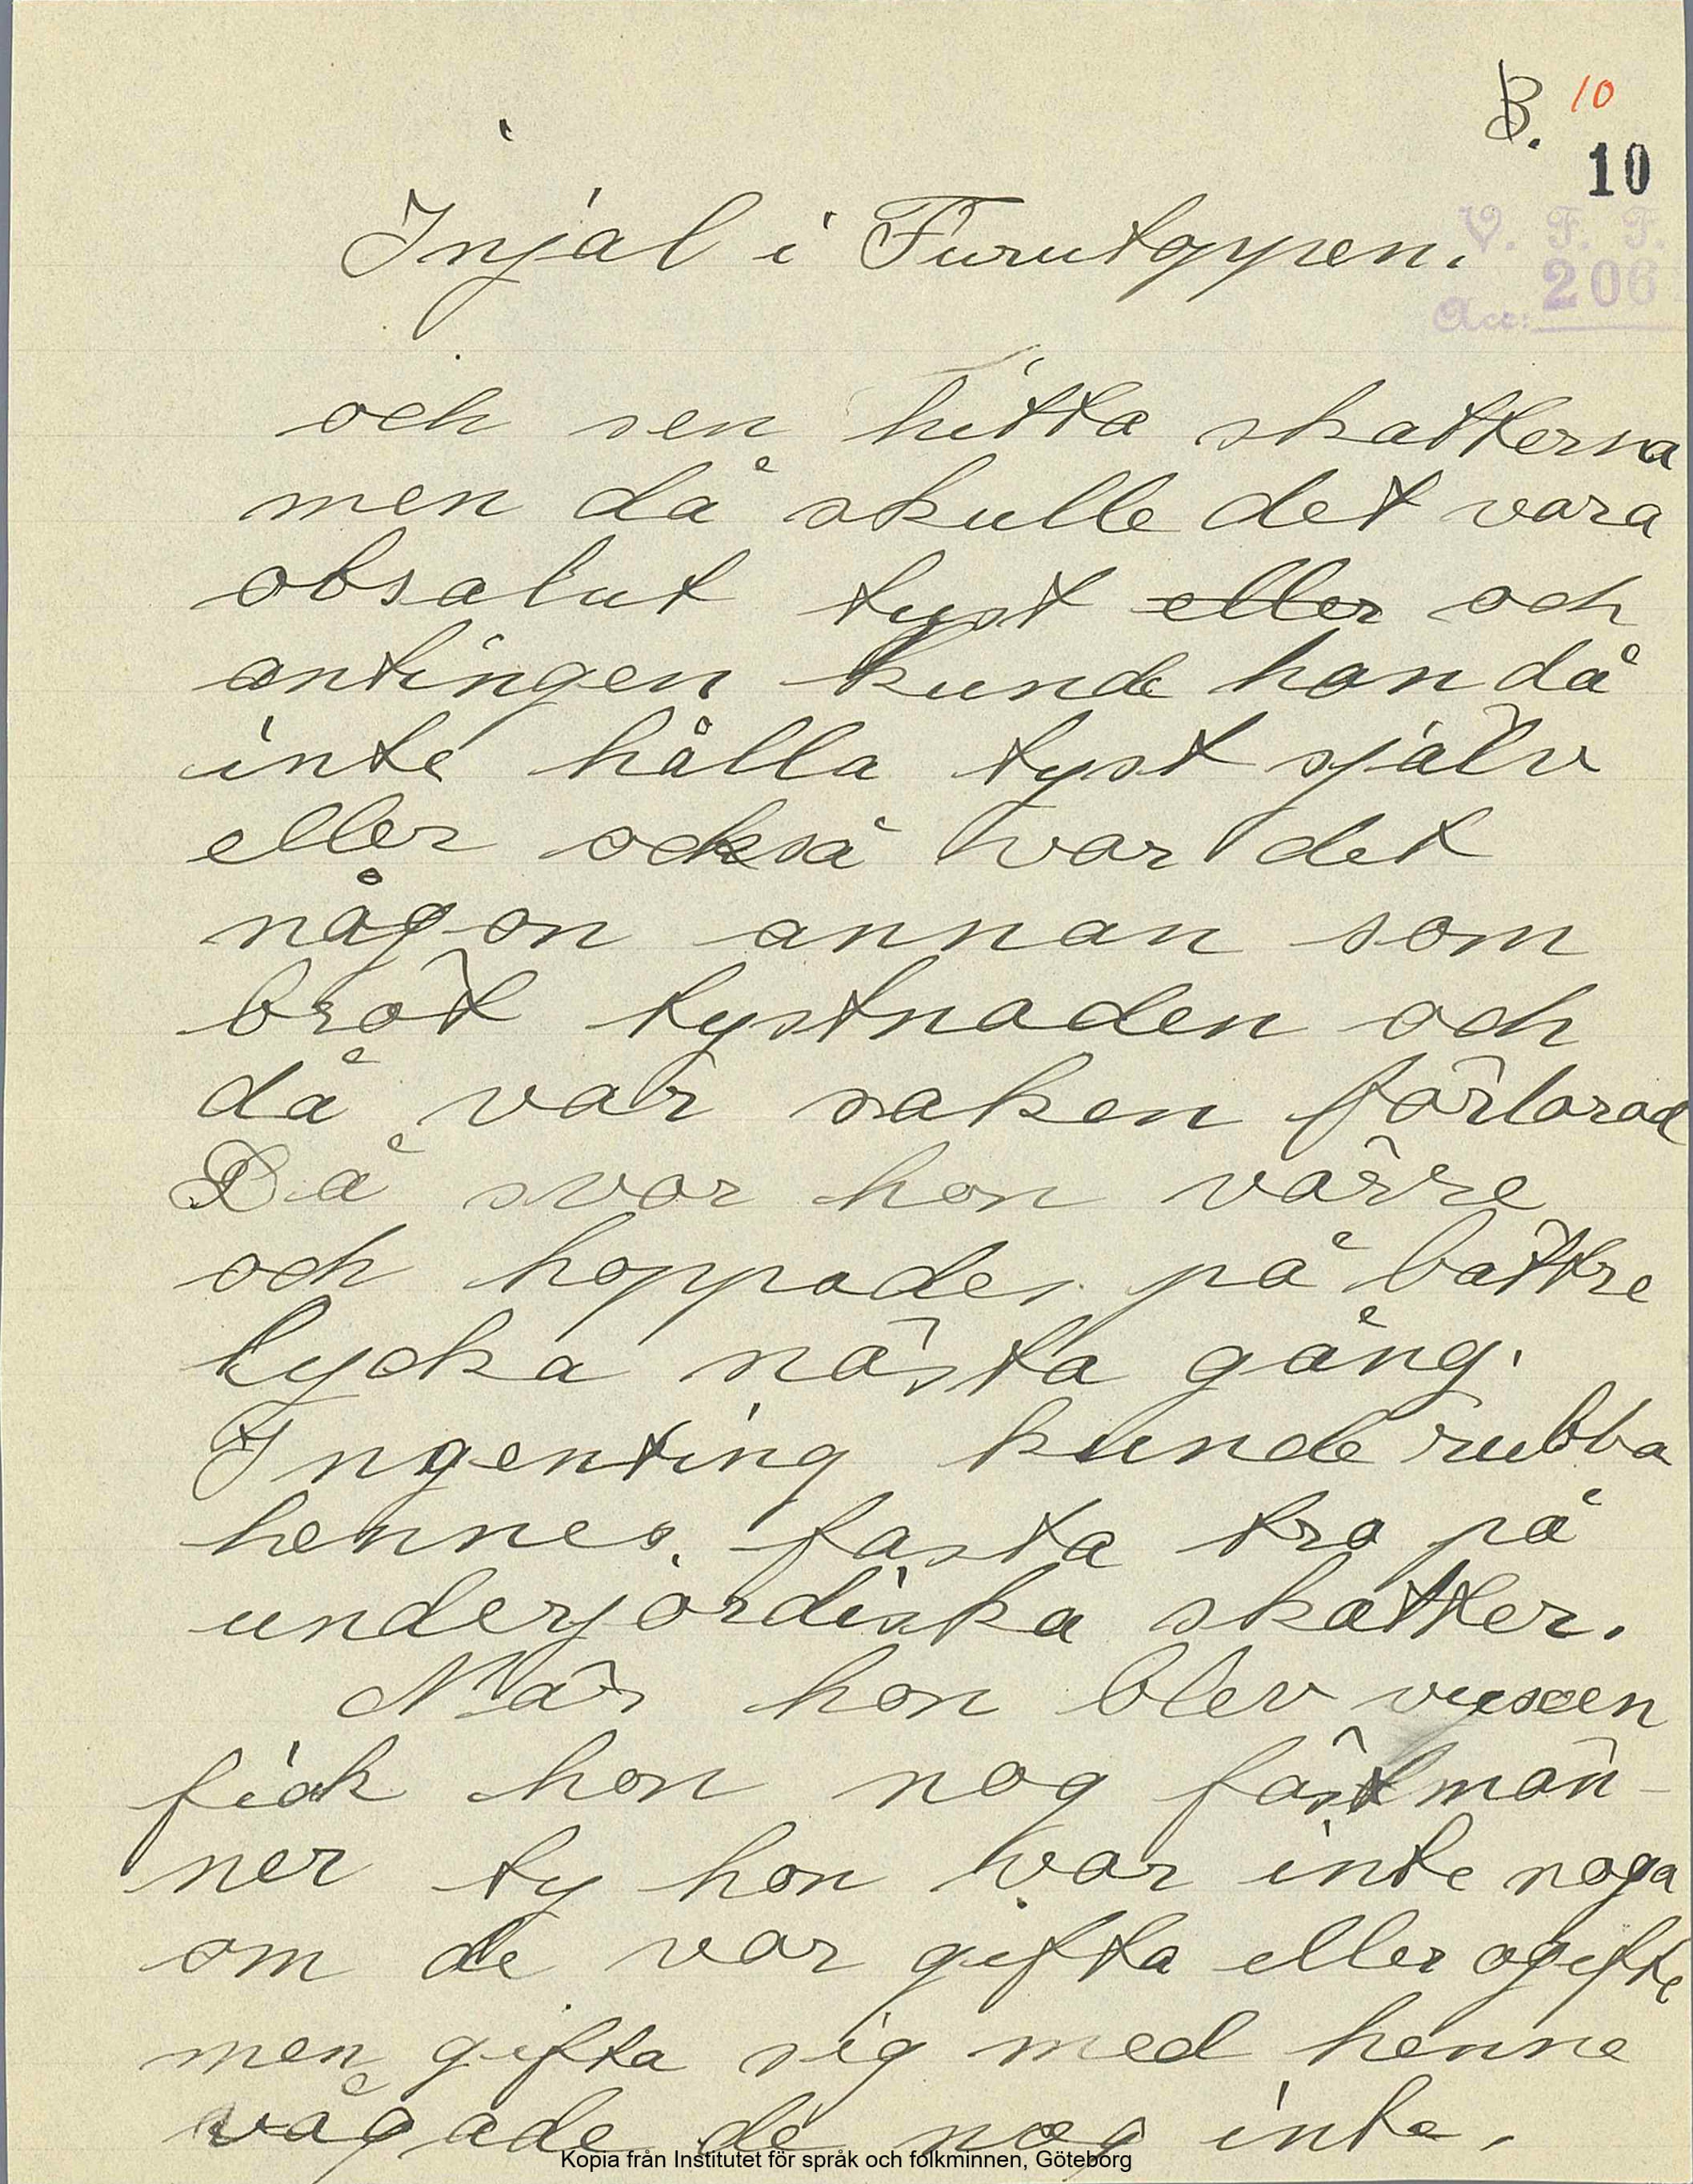 B. 10
10
V. F. F.
Acc: 206
Injal i Furutoppen.
och sen hitta skatterna
men då skulle det vara
obsalut tyst eller och
antingen kunde hon då
inte hålla tyst själv
eller också var det
någon annan som
bröt tystnaden och
då var saken förlorad
Då svor hon värre
och hoppades på bättre
lycka nästa gång.
Ingenting kunde rubba
hennes fasta tro på
underjordiska skatter.
När hon blev vuxen
fick hon nog fästmän-
ner ty hon var inte noga
om de var gifta eller ogifte
men gifta sig med henne
vågade de nog inte.
Kopia från Institutet för språk och folkminnen, Göteborg